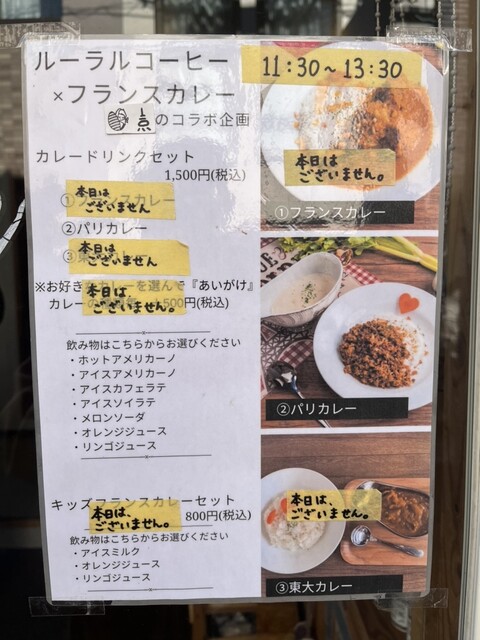 ルーラルコーヒー
×フランスカレー
点のコラボ企画
11:30～13:30
カレードリンクセット
1,500円(税込)
①フランスカレー
本日は
ございません
②パリカレー
③東
本日は
ございません
※お好き カレーを選んで『あいがけ』
カレーの 500円(税込)
本日は
ございません。
飲み物はこちらからお選びください
・ホットアメリカーノ
・アイスアメリカーノ
・アイスカフェラテ
・アイスソイラテ
・メロンソーダ
・オレンジジュース
・リンゴジュース
キッズフランスカレーセット
800円(税込)
本日は、
ございません。
飲み物はこちらからお選びください
・アイスミルク
・オレンジジュース
・リンゴジュース
本日は
ございません。
①フランスカレー
②パリカレー
本日は、
ございません。
③東大カレー